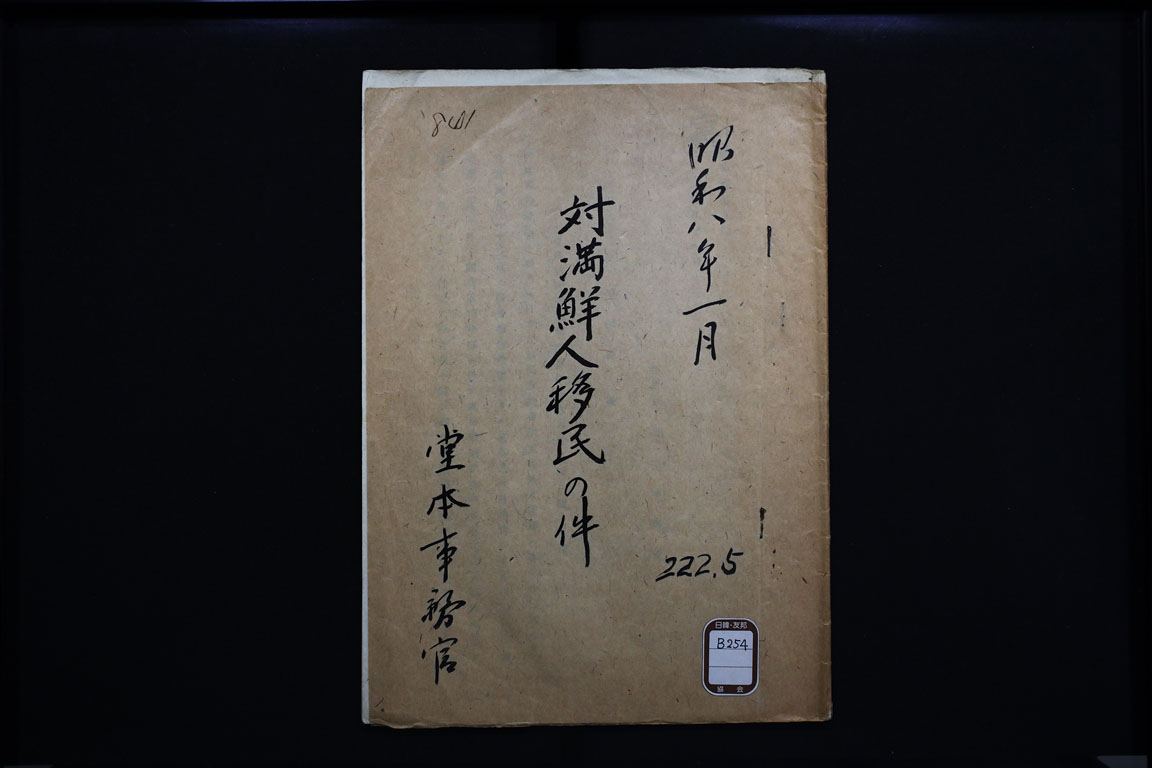 昭和八年一月
対満鮮人移民の件
堂本事務官
222.5
日韓・友邦
B254
協会